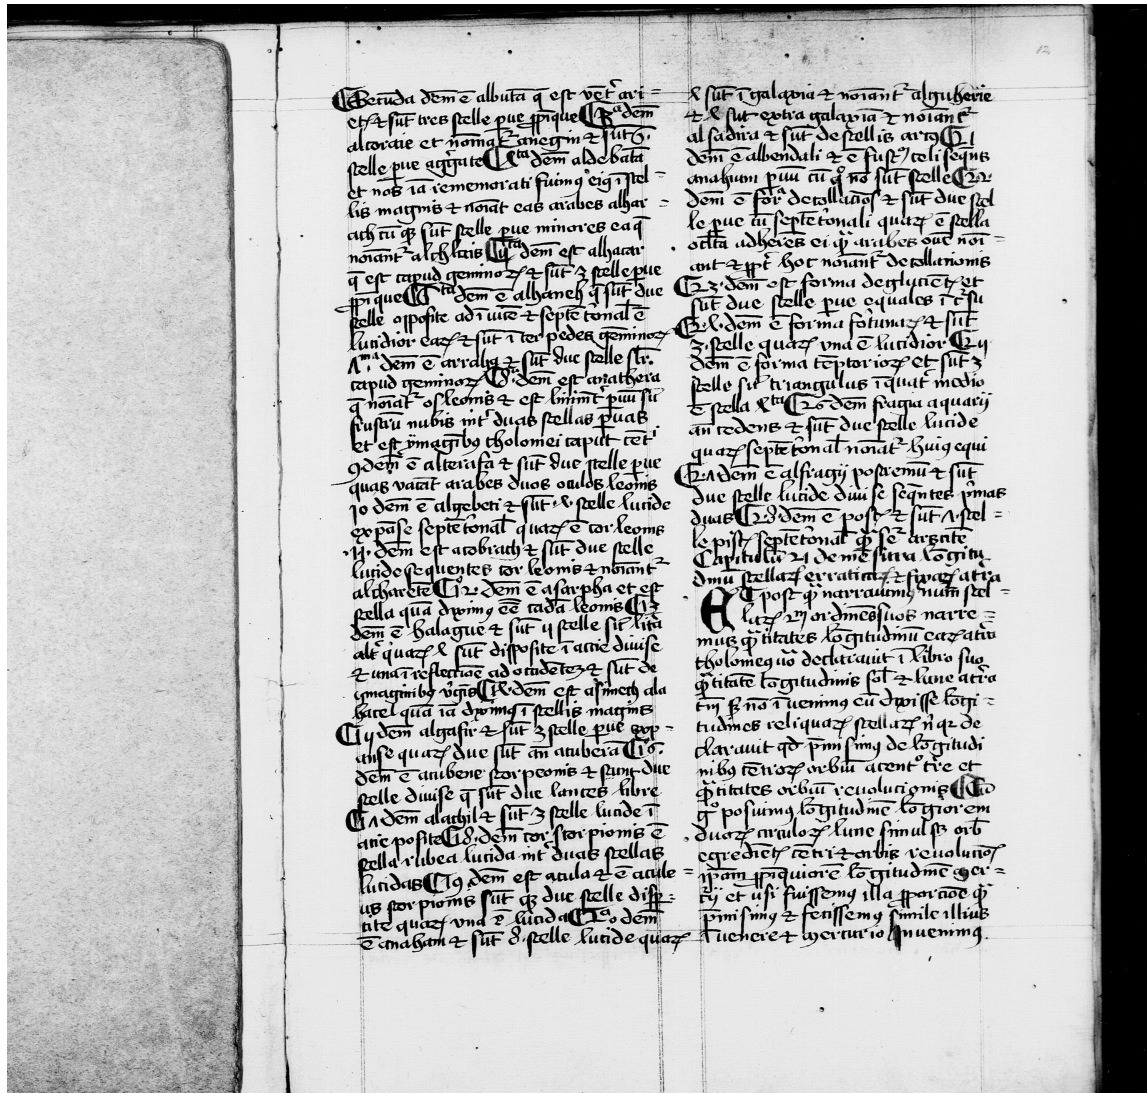 12
Secūda dem̄ ē albuta q̄ est vēt̄ ari=
et₎ & sūt tres stelle pue ꝓpique 3ᵃ dem̄
alcoraie et nomīat̄ anegin & sūt 6.
stelle pue agḡgate ta dem̄ aldebata
et nos iā rememorati fuimꝰ eiꝰ ī stel=
lis magnis & noīat eas arabes alhar=
ach cū qb̄ sūt stelle pue minores ea q̄
noīant̄ alchlais ta dem̄ est alhacar
q̄ est capud geminoꝝ & sūt 3 stelle pue
ꝓpique ta dem̄ ē alhaneh q̄ sūt due
stelle opposite ad īuicē & septētonal̄ ē
lucidior eaꝝ & sūt īter pedes geminoꝝ
ꝟᵐᵃ dem̄ ē arraha & sūt due stelle sūt.
capud geminoꝝ 8ᵃ dem̄ est anathera
q̄ noīat̄ os leonis & est pūū sū
frustrū nubis int̄ duas stellas puas
et est ymagībꝰ tholomei caput
9 dem̄ ē alterafa & sūt due stelle pue
quas vocāt arabes duos oculos leonis
10 dem̄ ē algebeti & sūt stelle lucide
expāse septētonal̄ quaꝝ ē cor leonis
11. dem̄ est acobrach & sūt due stelle
lucide sequentes cor leonis & noīant̄
alcharete 12 dem̄ ē asarpha et est
stella quā diximꝰ ēē cadā leonis 13
dem̄ ē halague & sūt stelle sic̄ līta
alt̄ quaꝝ sūt disposite ī acie diuise
& una ī reflectiōe ad occidētez & sūt de
ymaginibꝰ v̄gis 14 dem̄ est asimech ala
hacel quā iā diximꝰ ī stellis magnis
dem̄ algafir & sūt 3 stelle pue exp=
anse quaꝝ due sūt an acuberā 16.
dem̄ ē acubene scorpeonis & sunt due
stelle diuise q̄ sūt due lances libre
dem̄ alachil & sūt 3 stelle lucide ī
acie posite 18. dem̄ cor scorpionis ē
stella rubea lucida int̄ duas stellas
lucidas 19 dem̄ est acula & ē acule=
us scorpionis sūt qꝫ due stelle disp=
tite quaꝝ vna ē lucida 20 dem̄
ē anaham & sūt 8. stelle lucide quaꝝ
sūt ī galaxia & noīant̄ alguherie
& sūt extra galaxiā & noīant̄
alsadira & sūt de stellis arcꝰ
dem̄ ē albendali & ē fusꝰ celi seqns
anahum puū cū q̊ nō sūt stelle
dem̄ ē forᵃ decollacios & sūt due stel
le pue cū septētonali quaꝝ ē stella
oclta adherēs ei q̄ arabes ouē noī=
ant & ꝓpt̄ hoc noīant̄ decollationis
dem̄ est forma deglucient₎ et
sūt due stelle pue equales ī
dem̄ ē forma fortunaꝝ & sūt
3. stelle quaꝝ vna ē lucidior
dem̄ ē forma tēptorioꝝ et sūt 3
stelle sic̄ triangulus ī quaꝝ medio
ē stella ta dem̄ fragia aquarij
antecedens & sūt due stelle lucide
quaꝝ septētonal̄ noīat̄ huiꝰ equi
dem̄ ē alfragij postremū & sūt
due stelle lucide diuise seqntes p̄mas
duas dem̄ ē & sūt stel=
le pisc₎ septētonal̄
Capitulū 21 de mēsura lōgitu
dinū stellaꝝ erraticaꝝ & fixaꝝ a tr̄a
Et post q̄ narrauimꝰ num̄ stel=
laꝝ ordines suos narre=
mus q̄titates lōgitudinū eaꝝ a tr̄a
tholomeꝰ declarauit ī libro suo
q̄titatē lōgitudinis sol̄ & lune a tr̄a
tm̄ & nō īuenimꝰ eū dixisse lōgi=
tudines reliquaꝝ stellaꝝ de
clarauit qd̄ p̄misimꝰ de lōgitudi
nibꝰ cētroꝝ orbiū a centᵒ tr̄e et
q̄titates orbiū reuolucionis Cū
gͦ posuimꝰ lōgitudinē lōgiorem
duaꝝ circuloꝝ lune simul sꝫ orb̄
egredient₎ cētri & orbis reuolucioꝝ
ipam ꝓpiquiorē lōgitudinē mer=
ij et usi fuissemꝰ illa ꝓporcōe q̄
p̄misimꝰ & fecissemꝰ simile illius
ī venere & mercurio inuenimꝰ